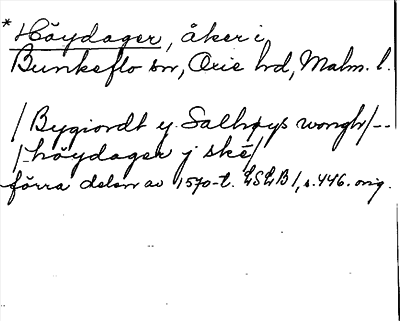 * Höydager, åker i
Bunkeflo sn, Oxie hd, Malm. l.
/Bygiordt y Salhøys wongh/--
/-höydager j ske/
förra delen av 1570-t. LSLB 1, s. 446. orig.